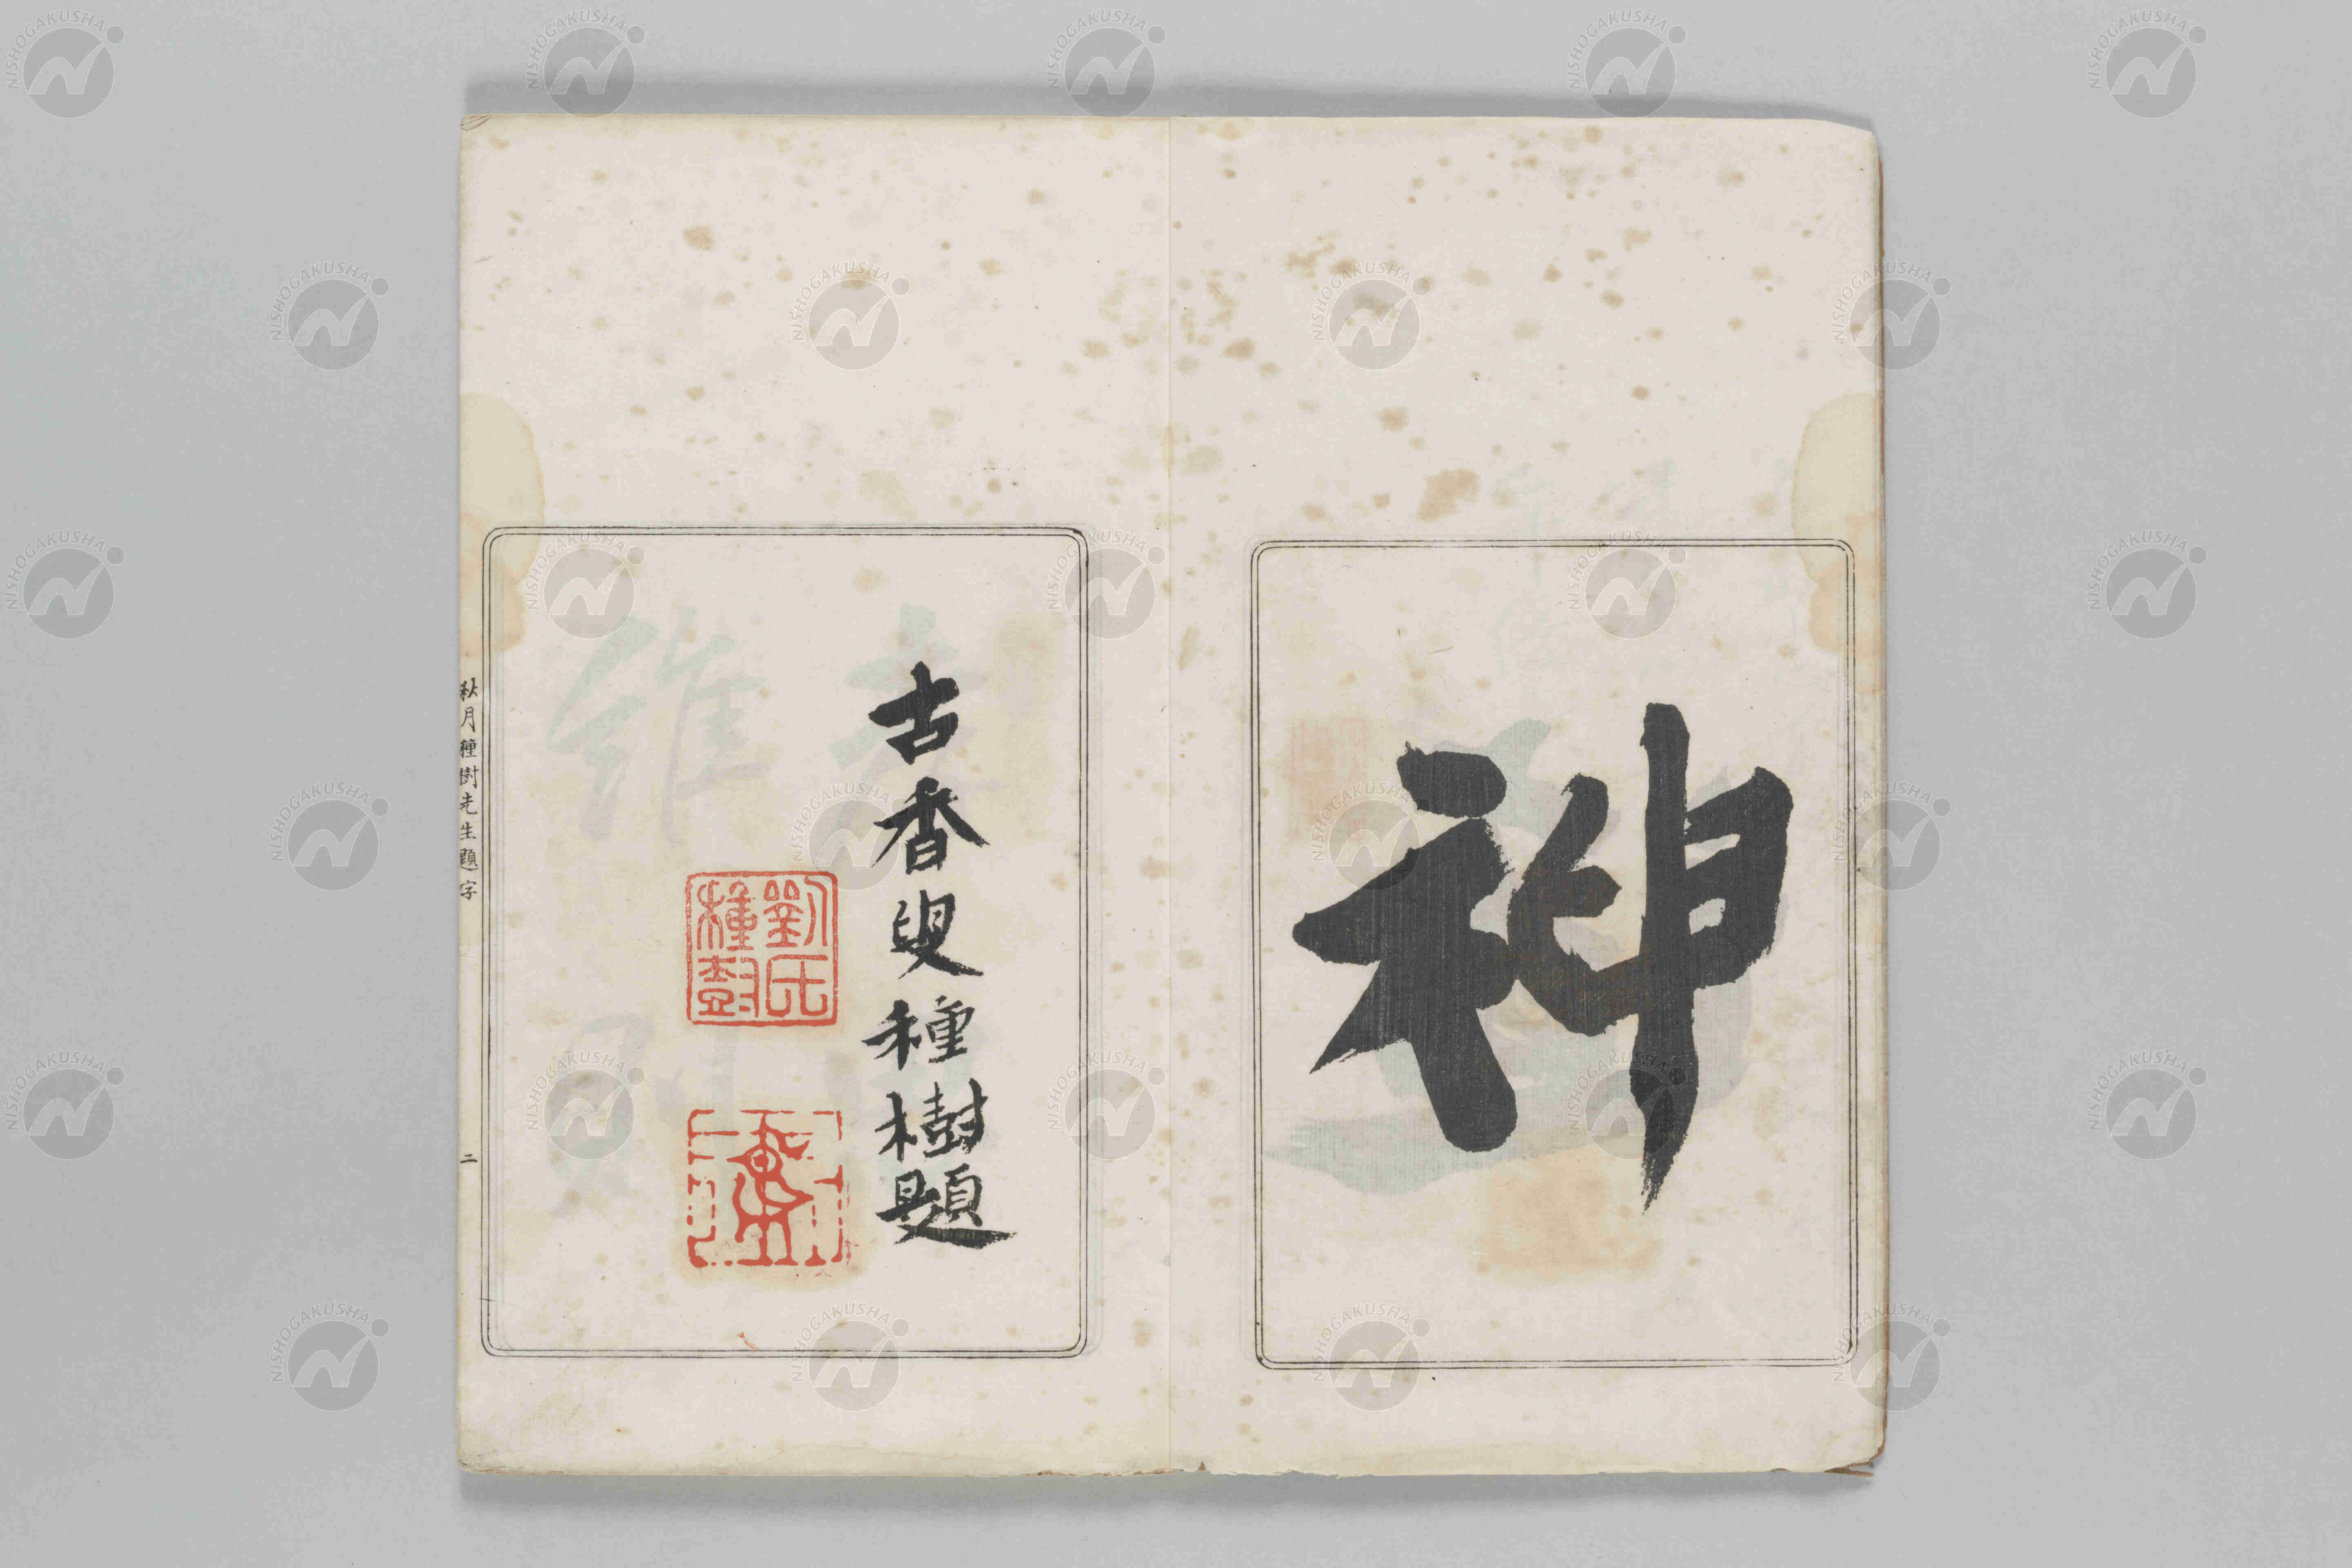 神
古香叟種樹題
劉氏種樹
秋月種樹先生題字
二
NISHOGAKUSHA